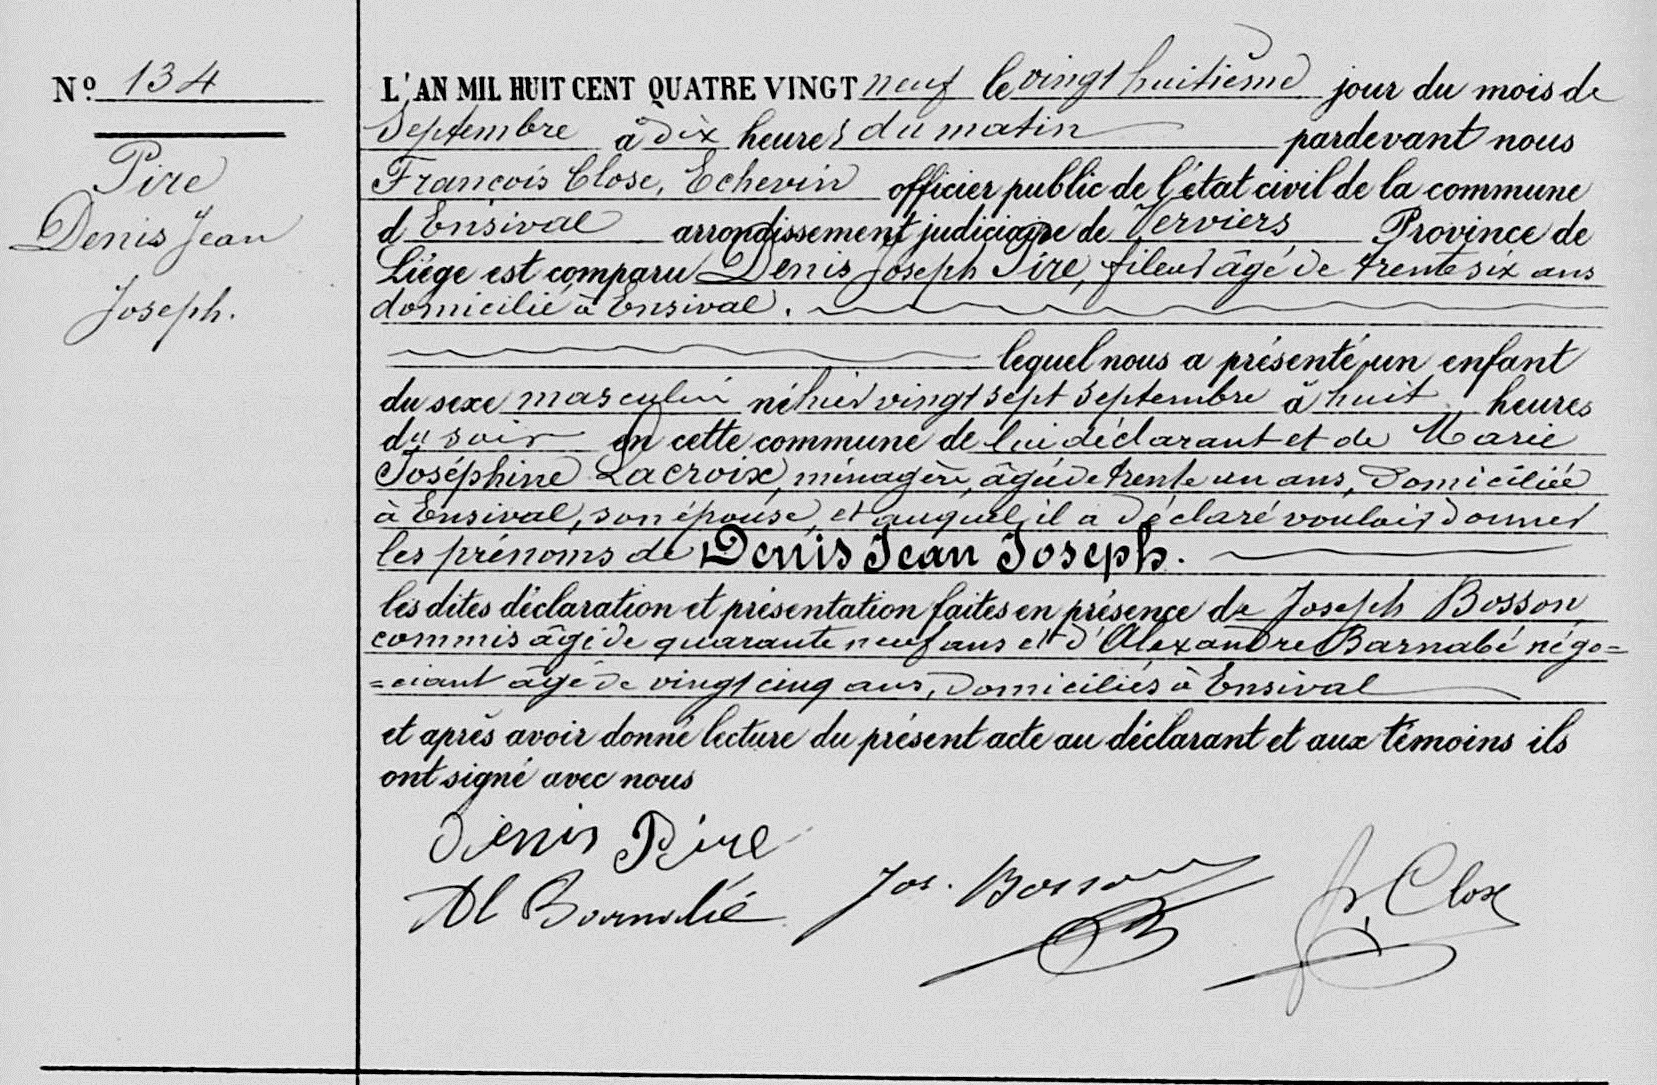 Nº 134
Pire
Denis Jean
Joseph.
L'AN MIL HUIT CENT QUATRE VINGT neuf le vingt huitième jour du mois de
Septembre à dix heures du matin pardevant nous
François Close, Echevin officier public de l'état civil de la commune
d'Ensival arrondissement judiciaire de Verviers Province de
Liége est comparu Denis Joseph Pire, fileur âgé de trente six ans
domicilié à Ensival.
lequel nous a présenté un enfant
du sexe masculin né hier vingt sept septembre à huit heures
du soir en cette commune de lui déclarant et de Marie
Joséphine Lacroix, ménagère, âgée de trente un ans, domiciliée
à Ensival, son épouse, et auquel il a déclaré vouloir donner
les prénoms de Denis Jean Joseph.
les dites déclaration et présentation faites en présence de Joseph Bosson
commis âgé de quarante neuf ans et d'Alexandre Barnabé négo=
=ciant âgé de vingt cinq ans, domiciliés à Ensival
et après avoir donné lecture du présent acte au déclarant et aux témoins ils
ont signé avec nous
Denis Pire
Al Barnabé
Jos. Bosson
Fr Close